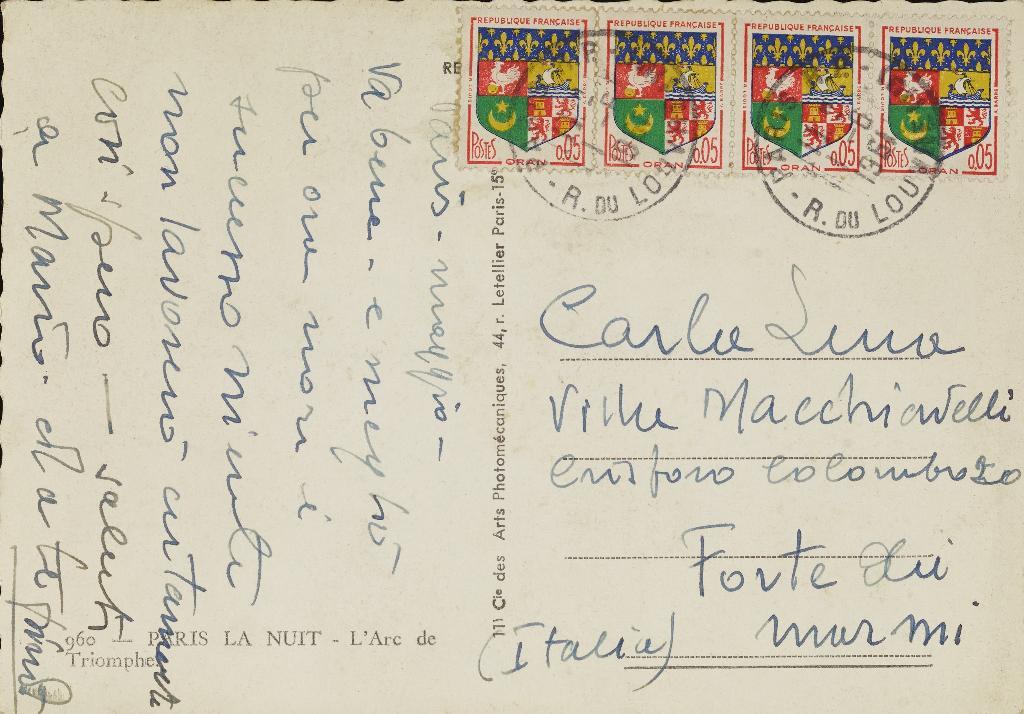 REPUBLIQUE FRANÇAISE REPUBLIQUE FRANÇAISE REPUBLIQUE FRANÇAISE REPUBLIQUE FRANÇAISE
POSTES 0.05 POSTES 0.05 POSTES 0.05 POSTES 0.05
ORAN ORAN ORAN ORAN
R. DU LOU
R. DU LOU
RE
Paris - maggio -
Va bene - e meglio
per ora non è
successo niente
non lavorerò certamente
così spero — saluti
a Mario. ed a te
11) Cie des Arts Photomécaniques, 44, r. Letellier Paris-15e
Carlo
Villa Macchiavelli
Cristoforo Colombo 20
Forte dei
marmi
(Italia)
960 — PARIS LA NUIT - L'Arc de
Triomphe